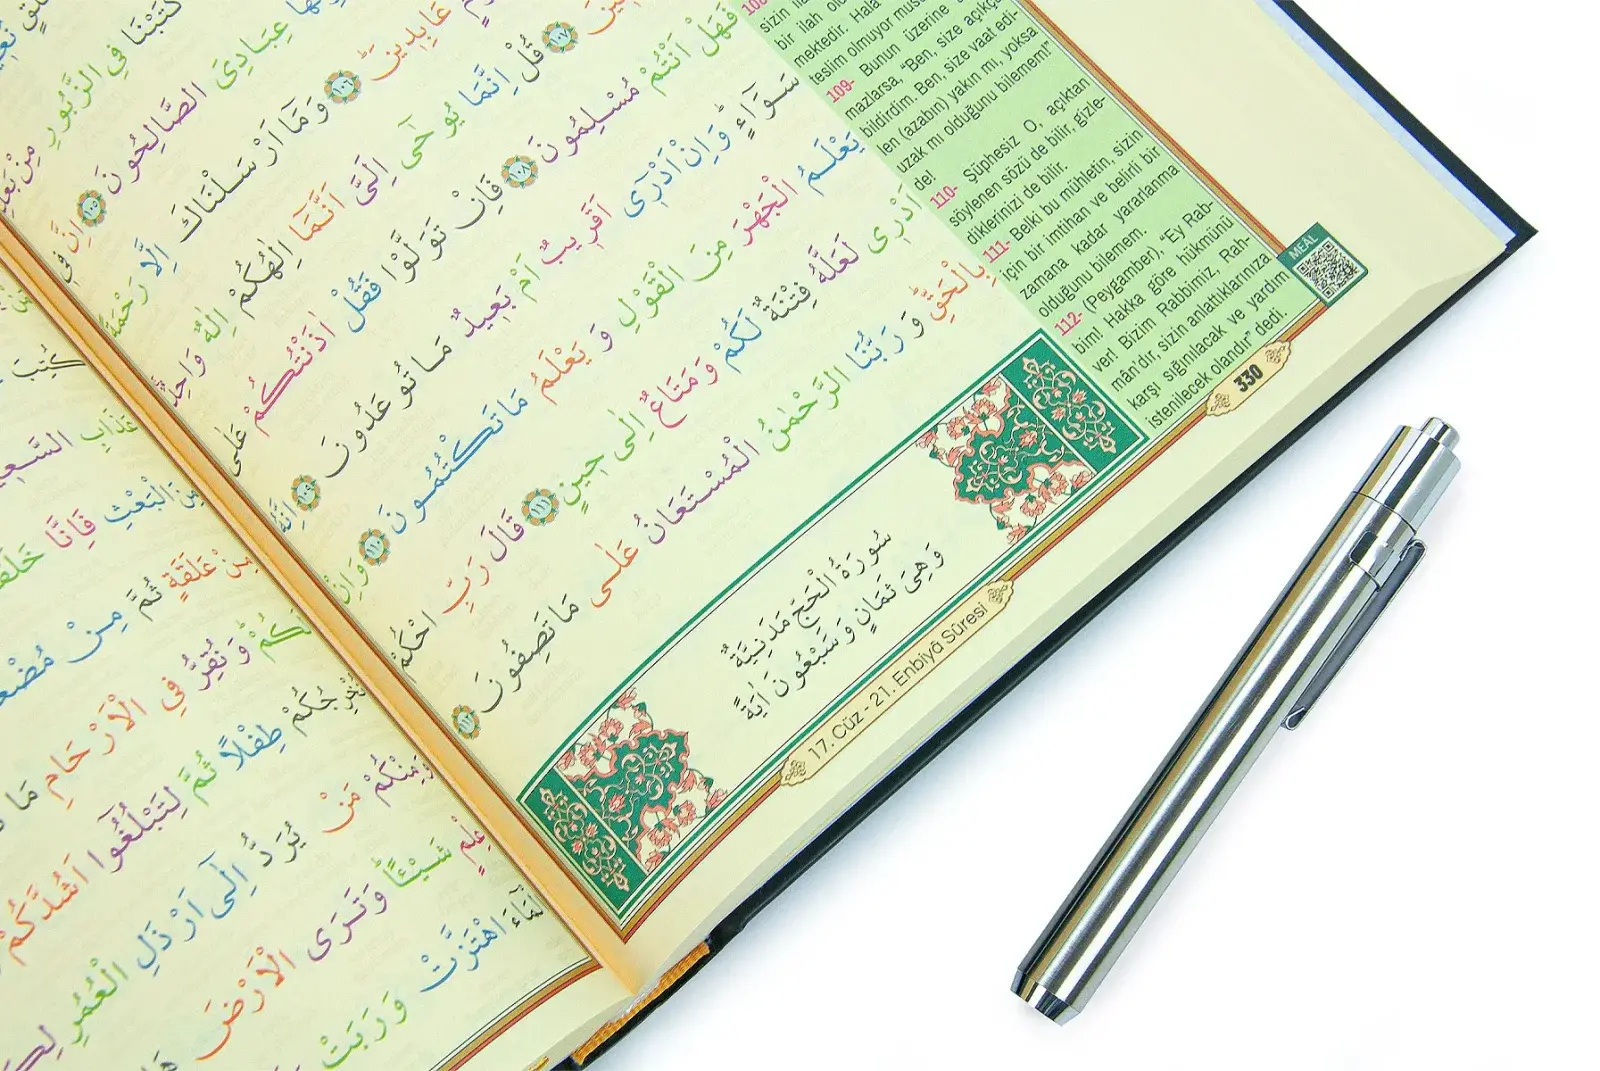 كَتَبْنَا فِي الزَّبُورِ مِنْ بَعْدِ
عِبَادِيَ الصَّالِحُونَ ﴿١٠٥﴾ اِنَّ فِي
عَابِدِينَ ﴿١٠٦﴾ وَمَٓا اَرْسَلْنَاكَ اِلَّا رَحْمَةً
﴿١٠٧﴾ قُلْ اِنَّمَا يُوحٰٓى اِلَيَّ اَنَّمَٓا اِلٰهُكُمْ اِلٰهٌ وَاحِدٌ
فَهَلْ اَنْتُمْ مُسْلِمُونَ ﴿١٠٨﴾ فَاِنْ تَوَلَّوْا فَقُلْ اٰذَنْتُكُمْ عَلٰى
سَوَٓاءٍ وَاِنْ اَدْرٖٓي اَقَرِيبٌ اَمْ بَعِيدٌ مَا تُوعَدُونَ ﴿١٠٩﴾ اِنَّهُ
يَعْلَمُ الْجَهْرَ مِنَ الْقَوْلِ وَيَعْلَمُ مَا تَكْتُمُونَ ﴿١١٠﴾ وَاِنْ
اَدْرٖي لَعَلَّهُ فِتْنَةٌ لَكُمْ وَمَتَاعٌ اِلٰى حِينٍ ﴿١١١﴾ قَالَ رَبِّ احْكُمْ
بِالْحَقِّ وَرَبُّنَا الرَّحْمٰنُ الْمُسْتَعَانُ عَلٰى مَا تَصِفُونَ ﴿١١٢﴾
سُورَةُ الْحَجِّ مَدَنِيَّةٌ
وَهِيَ ثَمَانٍ وَسَبْعُونَ اٰيَةً
17. Cüz - 21. Enbiyâ Sûresi
bir ilah
mektedir. Hala
teslim olmuyor
109- Bunun üzerine
mazlarsa, "Ben, size açıkça
bildirdim. Ben, size vaat edi-
len (azabın) yakın mı, yoksa
uzak mı olduğunu bilemem!"
de!
110- Şüphesiz O, açıktan
söylenen sözü de bilir, gizle-
diklerinizi de bilir.
111- Belki bu mühletin, sizin
için bir imtihan ve belirli bir
zamana kadar yararlanma
olduğunu bilemem.
112- (Peygamber), "Ey Rab-
bim! Hakka göre hükmünü
ver! Bizim Rabbimiz, Rah-
mân'dır, sizin anlattıklarınıza
karşı sığınılacak ve yardım
istenilecek olandır" dedi.
MEÂL
330
كُتِبَ
عَذَابِ السَّعِيرِ
مِنَ الْبَعْثِ فَاِنَّا
مِنْ عَلَقَةٍ ثُمَّ مِنْ
لَكُمْ وَنُقِرُّ فِي الْاَرْحَامِ مَا
نُخْرِجُكُمْ طِفْلًا ثُمَّ لِتَبْلُغُٓوا اَشُدَّكُمْ
وَمِنْكُمْ مَنْ يُرَدُّ اِلٰٓى اَرْذَلِ الْعُمُرِ
عِلْمٍ شَيْـًٔا وَتَرَى الْاَرْضَ
الْمَٓاءَ اهْتَزَّتْ وَرَبَتْ